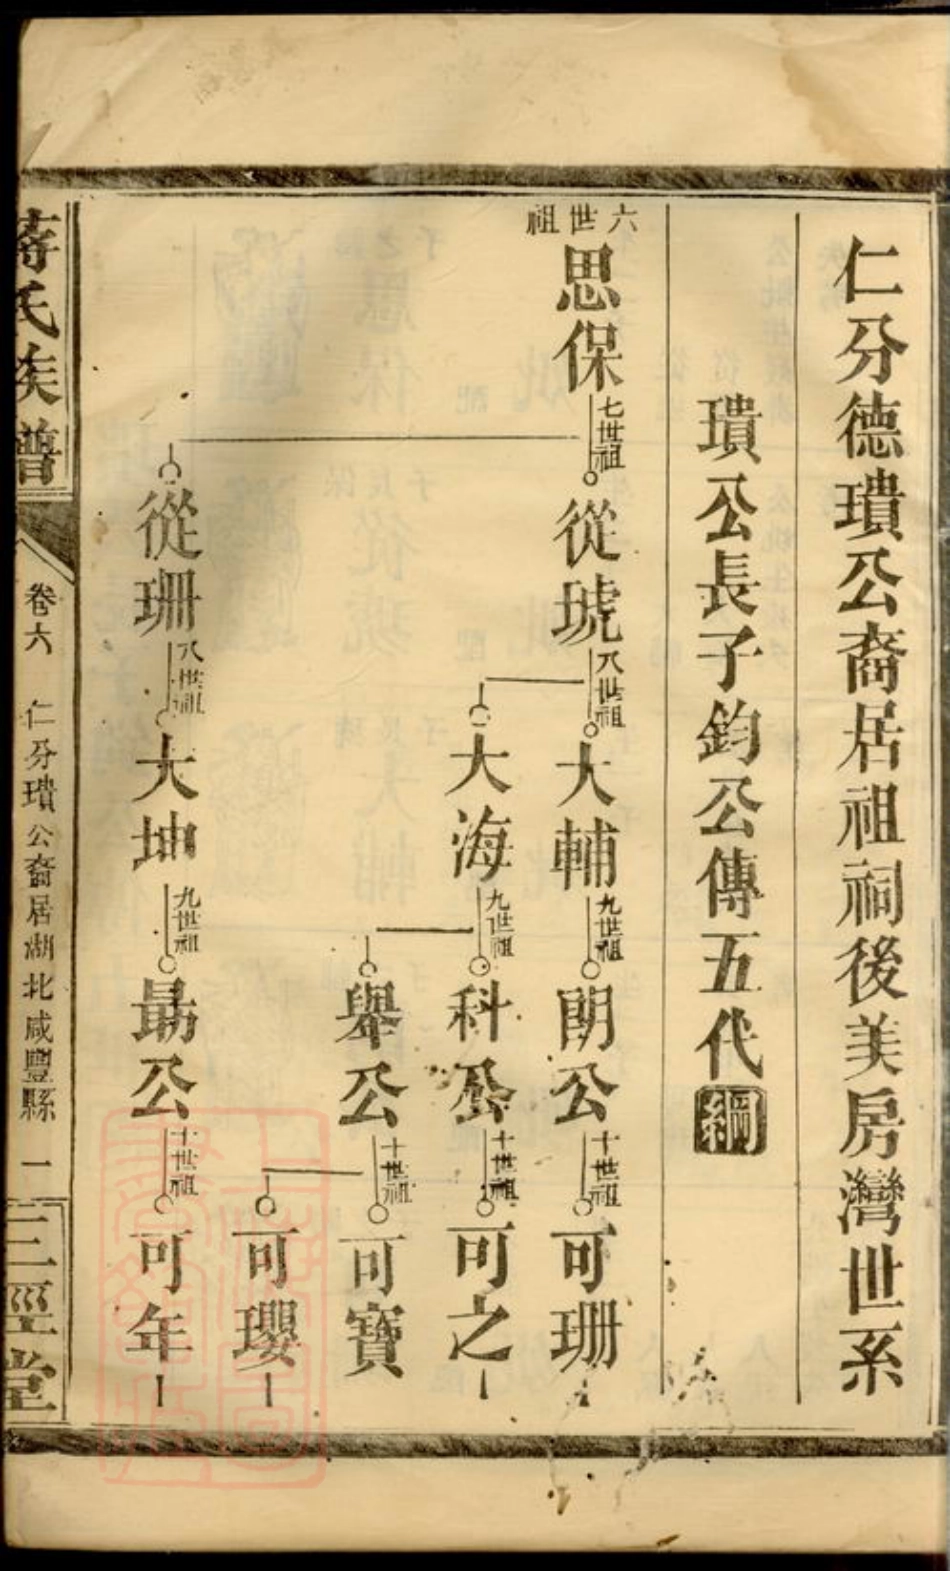 仁分德璝公裔居祖祠後美房灣世系
璝公長子鈞公傳五代綱
六世祖
思保
七世祖
從琥
八世祖
大輔
九世祖
朗公
十世祖
可珊
大海
九世祖
科公
十世祖
可之
舉公
十世祖
可寶
可瓔
從珊
八世祖
大坤
九世祖
勗公
十世祖
可年
蔣氏族譜
卷六
仁分璝公裔居湖北咸豐縣
一
三徑堂